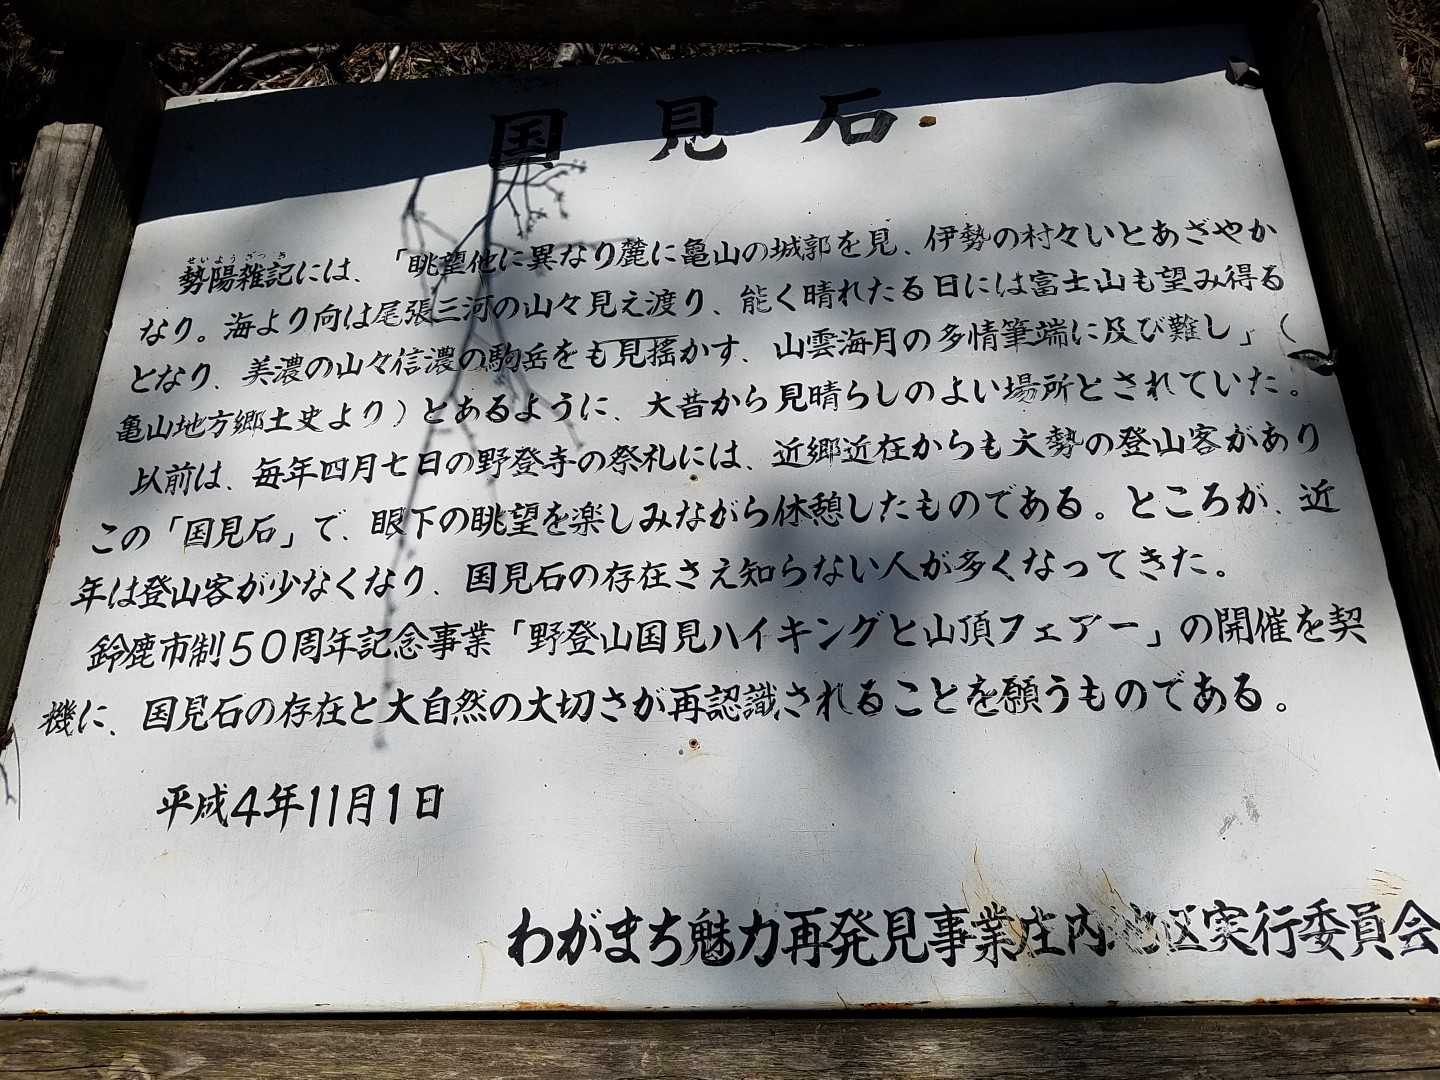 国見石
せいようざっき
勢陽雑記には、「眺望他に異なり麓に亀山の城郭を見、伊勢の村々いとあざやか
なり。海より向は尾張三河の山々見え渡り、能く晴れたる日には富士山も望み得る
となり、美濃の山々信濃の駒岳をも見揺かす、山雲海月の多情筆端に及び難し」(
亀山地方郷土史より)とあるように、大昔から見晴らしのよい場所とされていた。
以前は、毎年四月七日の野登寺の祭礼には、近郷近在からも大勢の登山客があり
この「国見石」で、眼下の眺望を楽しみながら休憩したものである。ところが、近
年は登山客が少なくなり、国見石の存在さえ知らない人が多くなってきた。
鈴鹿市制50周年記念事業「野登山国見ハイキングと山頂フェアー」の開催を契
機に、国見石の存在と大自然の大切さが再認識されることを願うものである。
平成4年11月1日
わがまち魅力再発見事業庄内地区実行委員会